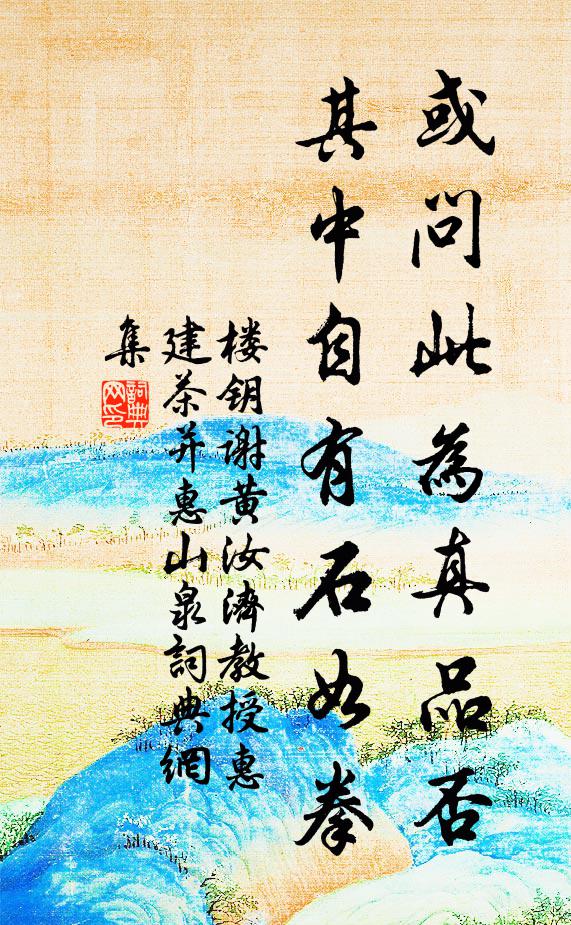 或問此為真品否
其中自有石如拳
楼钥谢黄汝濟教授惠
建茶并惠山泉詞典網
集
詞典網印